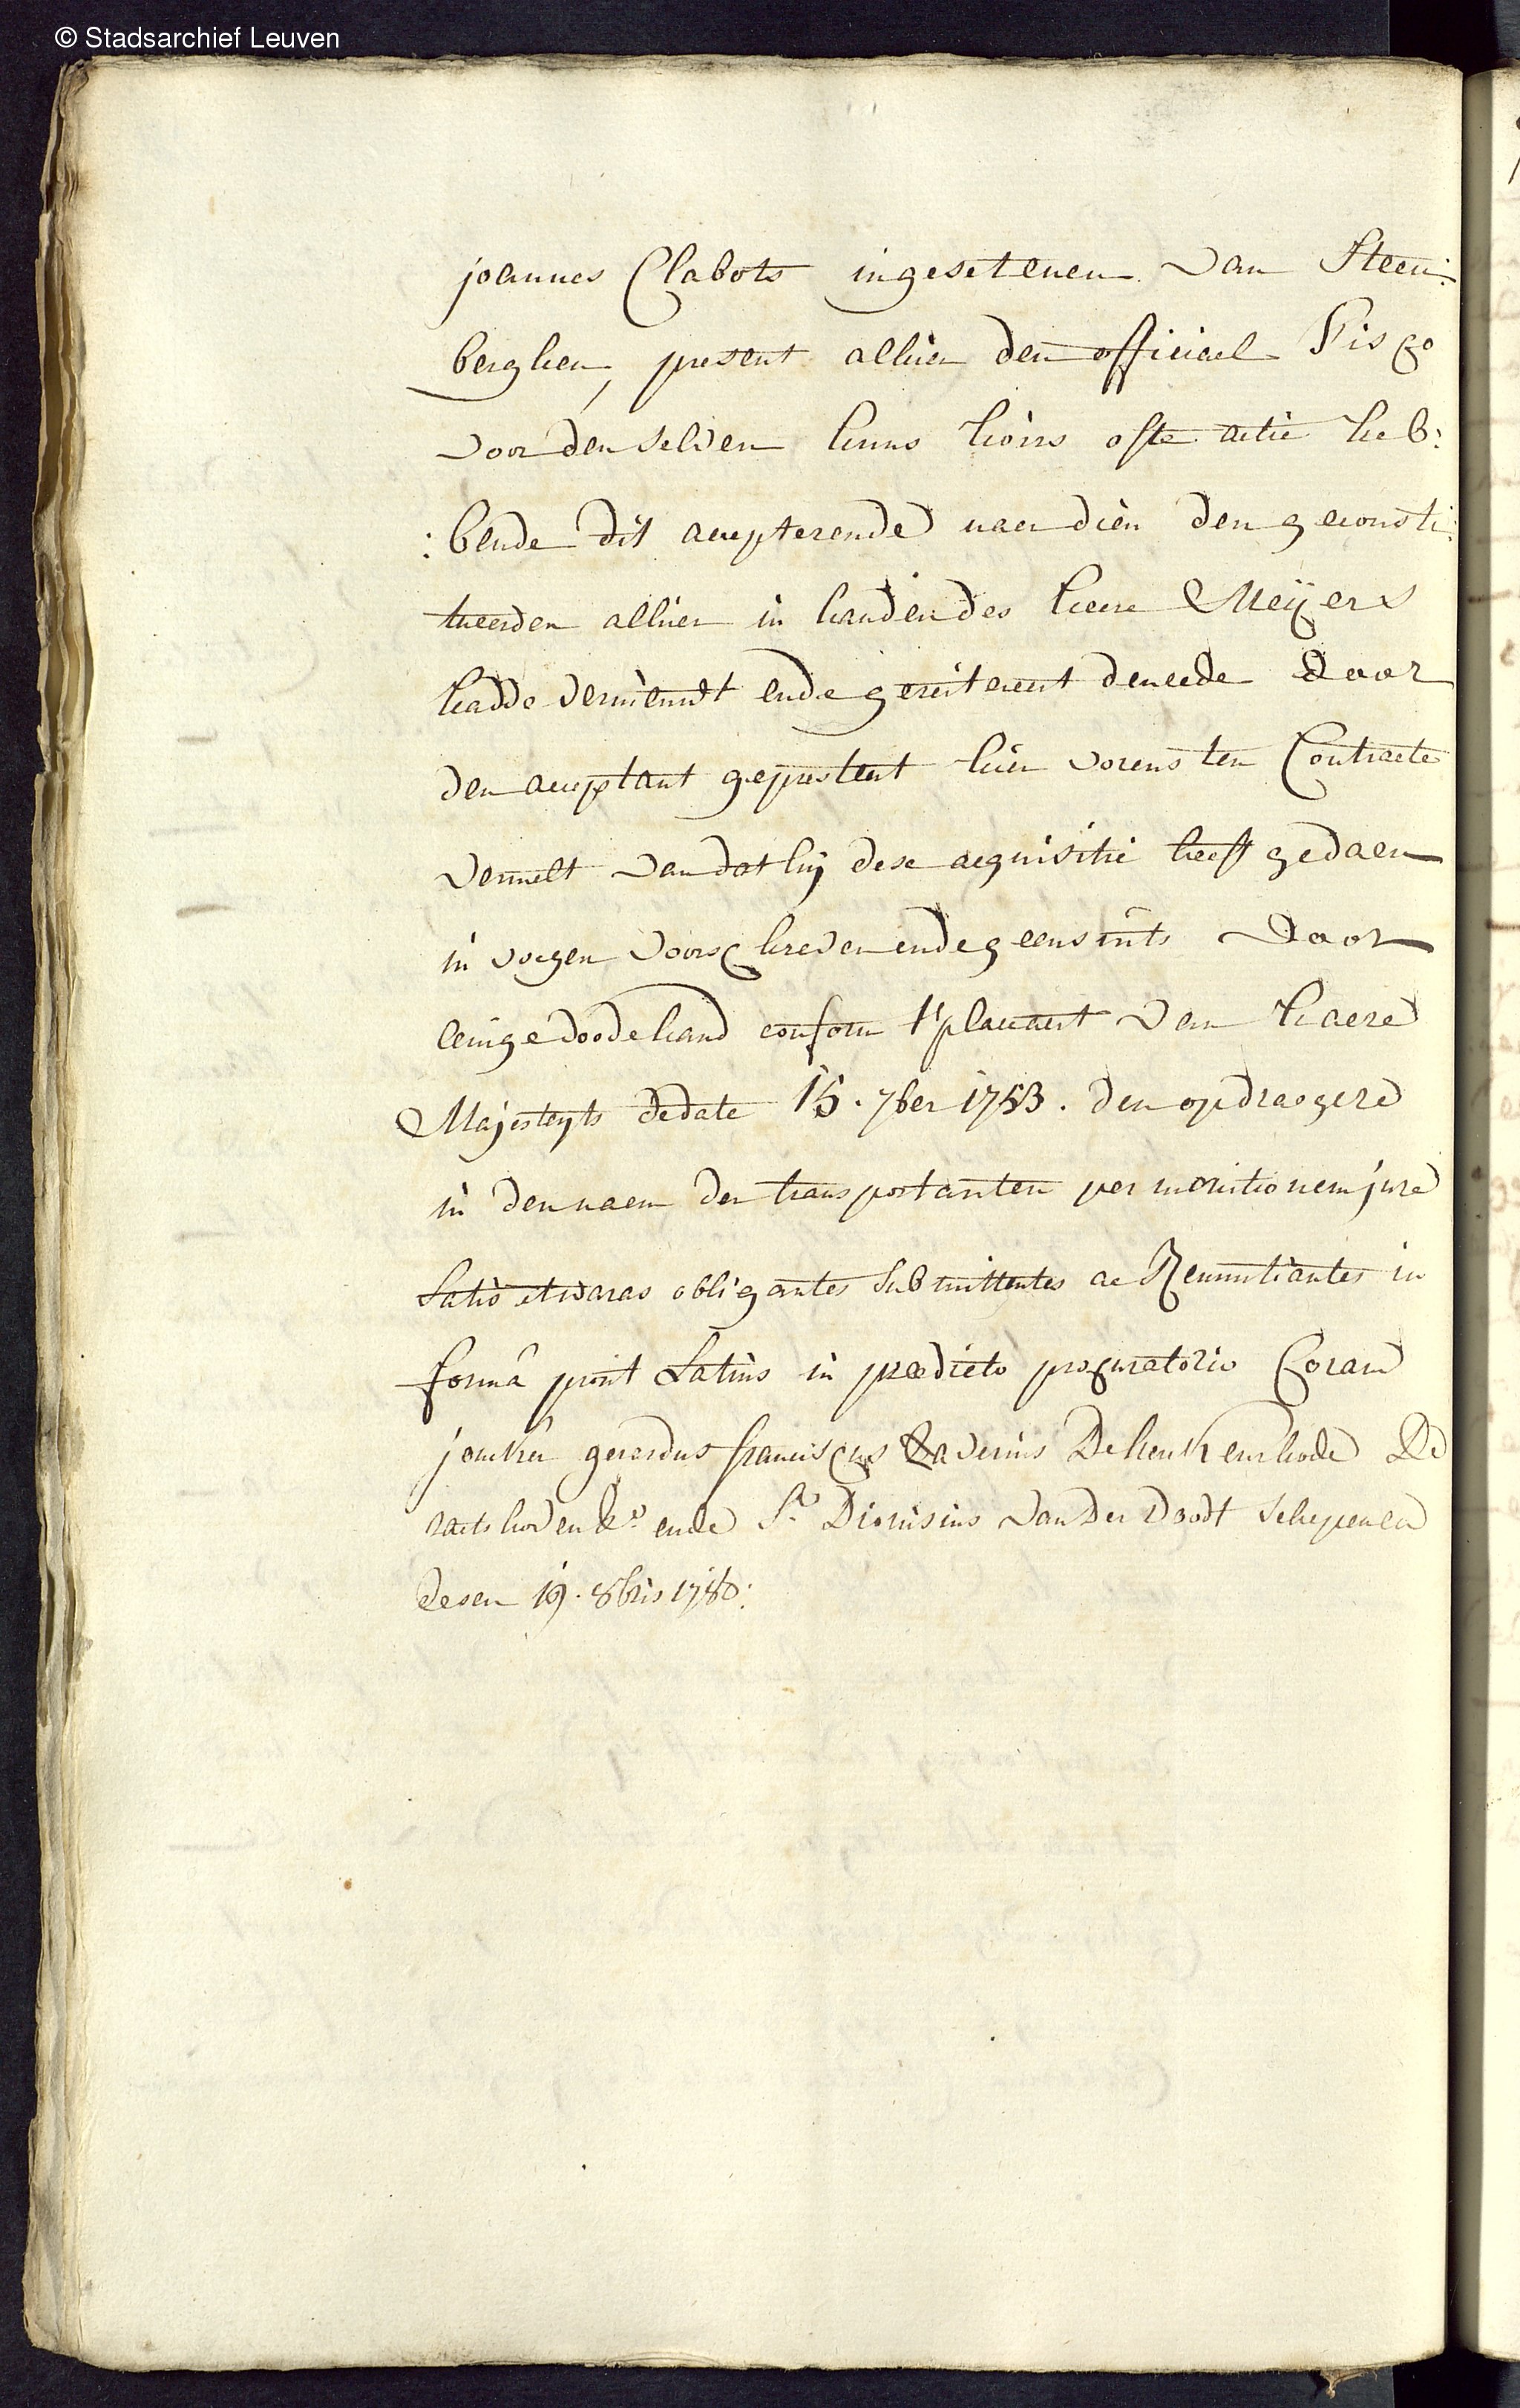 © Stadsarchief Leuven
joannes Clabots ingesetenen van Steen:
berghen, present alhier den officiael Fisco
voor den selven huns hoirs ofte actie heb:
:bende dit accepterende naer dien den geconsti:
tueerden alhier in handen des heere Meÿers
hadde vernieuwt ende gereitereert den eede door
den acceptant gepresteert hier vorens ten Contracte
vermelt van dat hij dese acquisitie heeft gedaen
in voegen voorschreven ende geensints voor
eenige doode hand conform t'placcaert van haere
Majesteyts de date 15. 7ber 1753. den opdraegere
in den naem der transportanten per monitionem jure
satis et waras obligantes submittentes ac Renuntiantes in
formâ prout Latius in prædicto procuratorio Coram
jonker gerardus franciscus Xaverius De herckenrhode De
raetshoven &a ende Sr Dionisius van Der Doodt schepenen
desen 19. 8bris 1780: